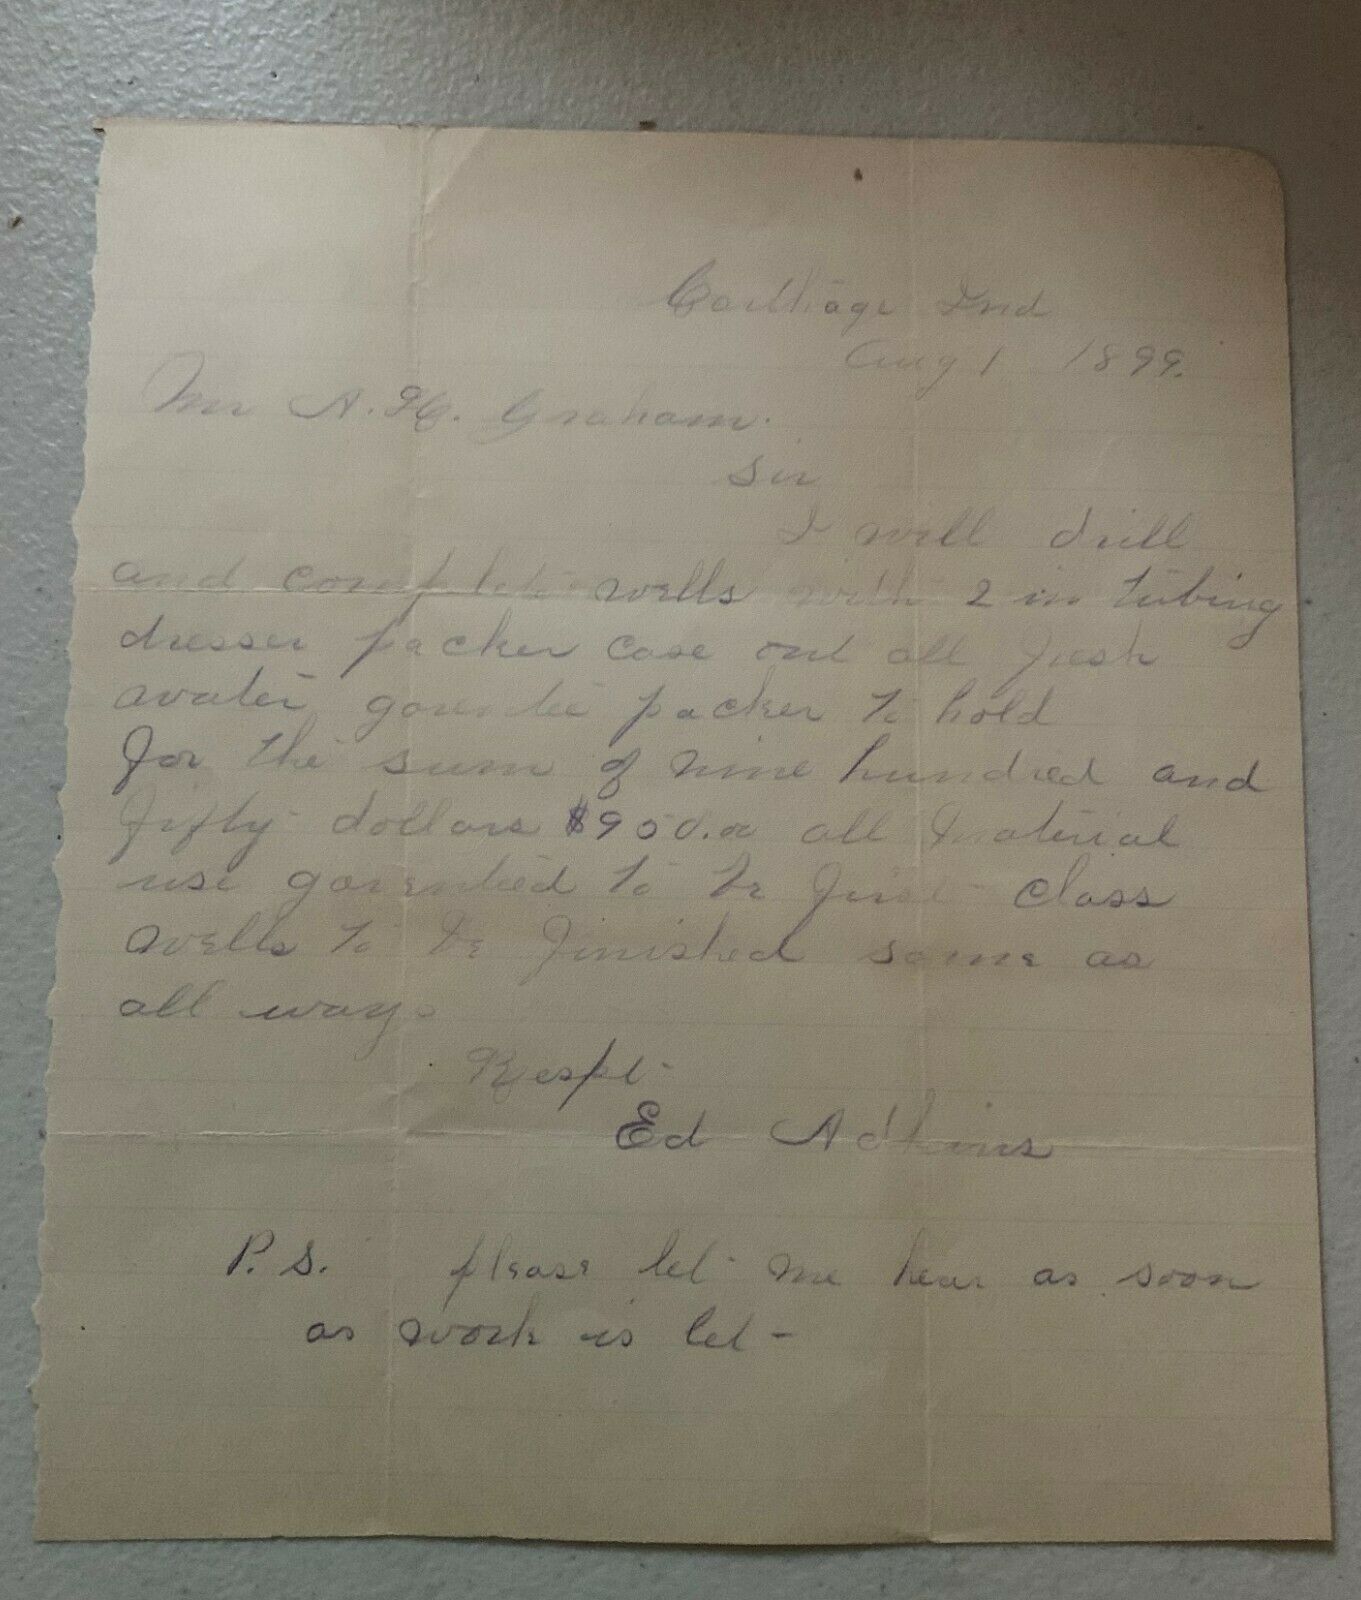 Carthage Ind
Aug 1 1899.
Mr A. H. Graham.
Sir
I will drill
and complete wells with 2 in tubing
dresser packer case out all fresh
water garentee packer to hold
for the sum of nine hundred and
fifty dollars $950.00 all material
use garenteed to be first class
wells to be finished same as
all ways
Respt-
Ed Adkins
P.S. please let me hear as soon
as work is let-